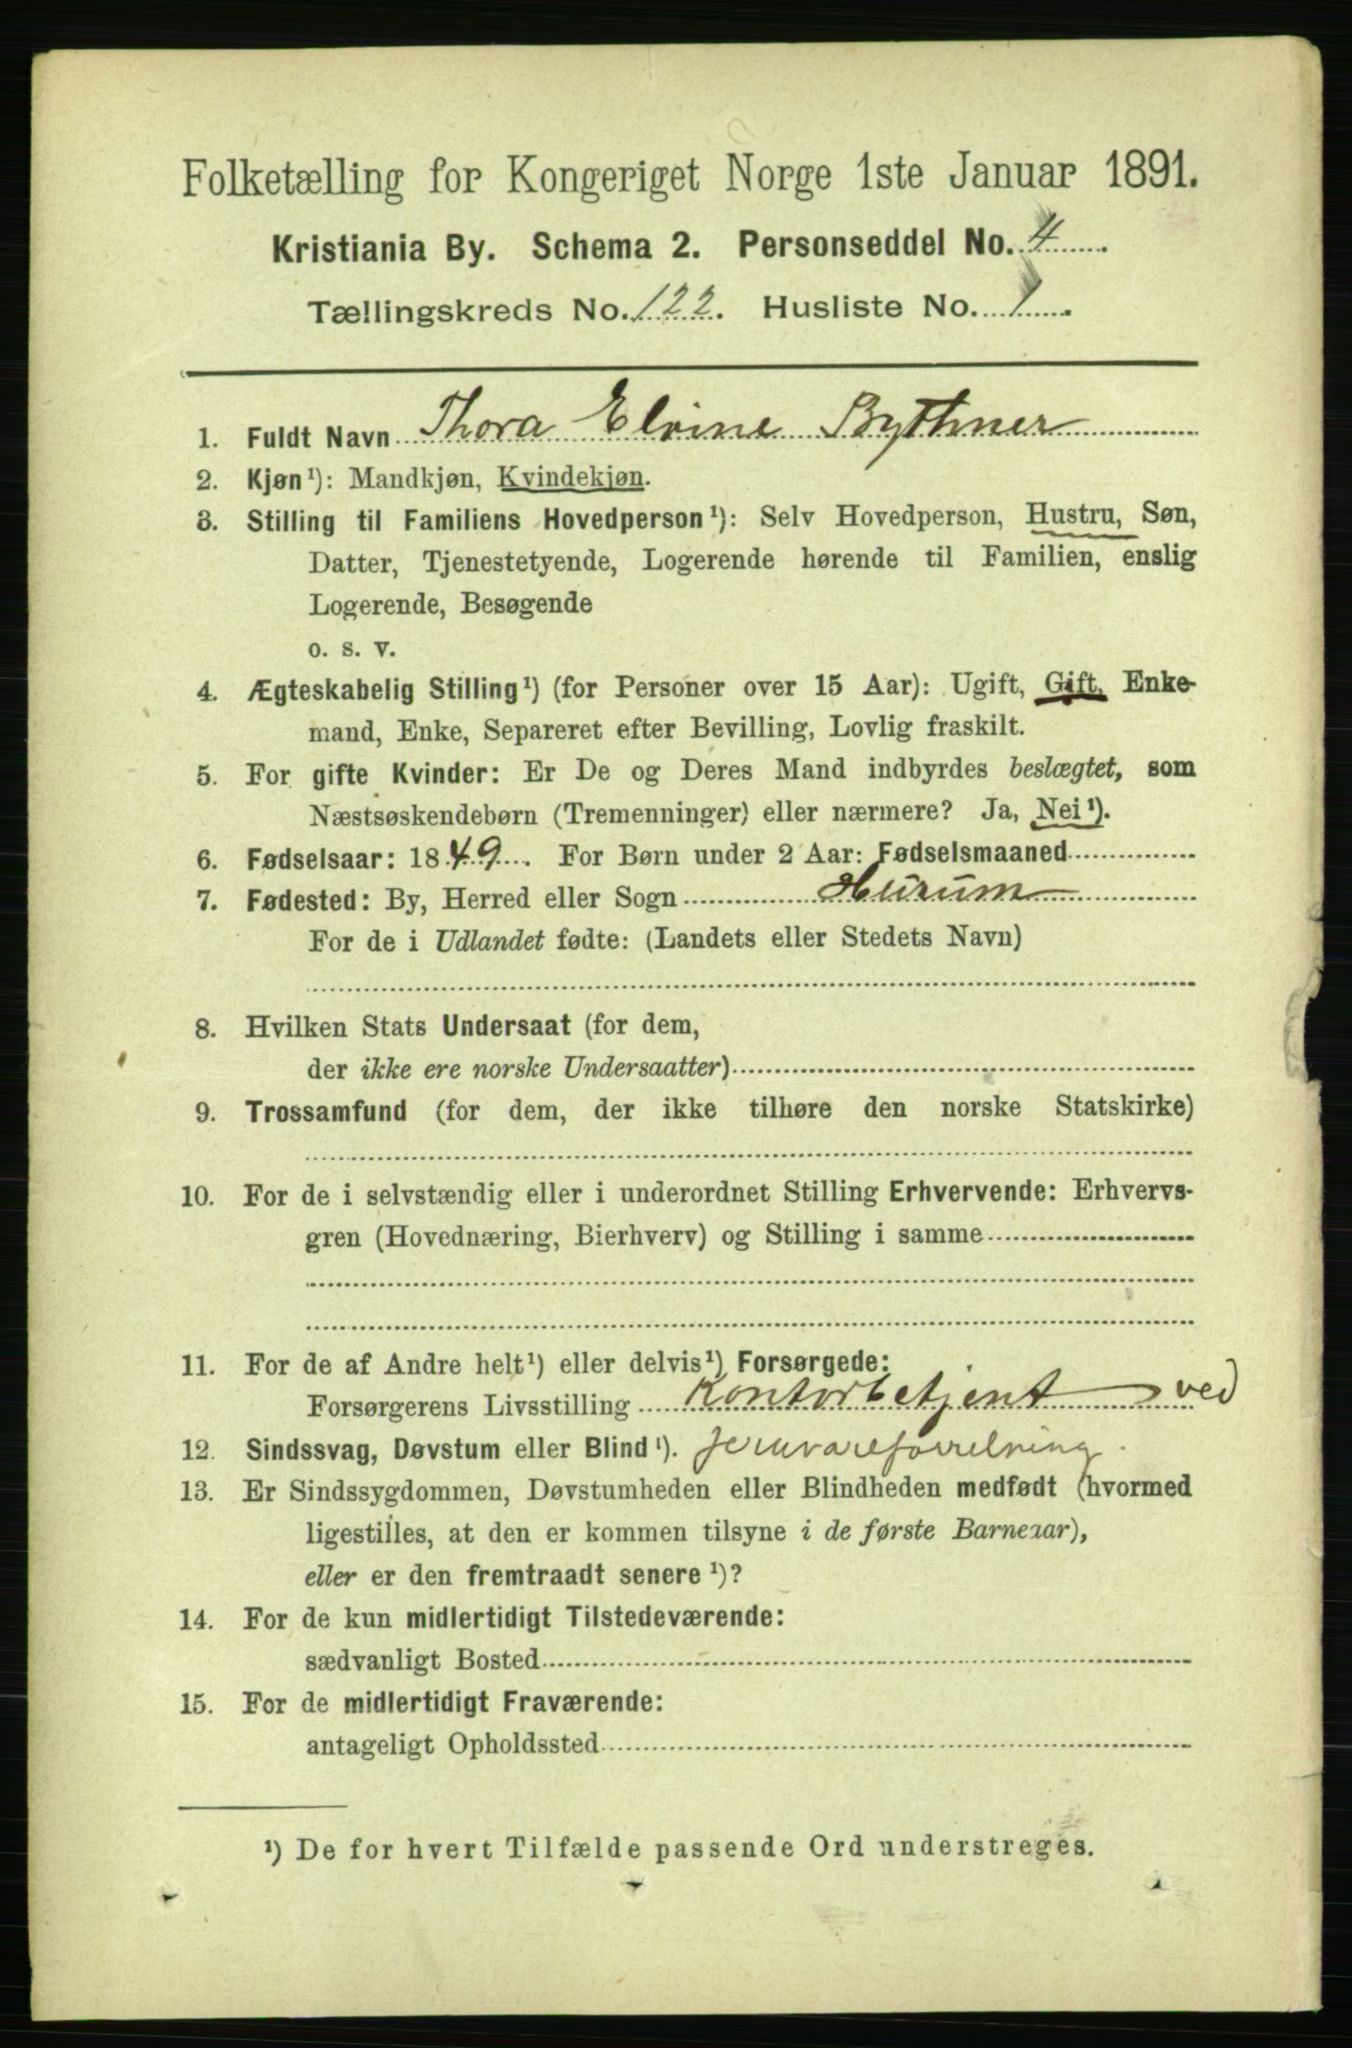 Folketælling for Kongeriget Norge 1ste Januar 1891.
Kristiania By. Schema 2. Personseddel No. 4
Tællingskreds No. 122. Husliste No. 1
1. Fuldt Navn Thora Elvine Bythner
2. Kjøn¹): Mandkjøn, Kvindekjøn.
3. Stilling til Familiens Hovedperson¹): Selv Hovedperson, Hustru, Søn,
Datter, Tjenestetyende, Logerende hørende til Familien, enslig
Logerende, Besøgende
o. s. v.
4. Ægteskabelig Stilling¹) (for Personer over 15 Aar): Ugift, Gift, Enke-
mand, Enke, Separeret efter Bevilling, Lovlig fraskilt.
5. For gifte Kvinder: Er De og Deres Mand indbyrdes beslægtet, som
Næstsøskendebørn (Tremenninger) eller nærmere? Ja, Nei¹).
6. Fødselsaar: 1849. For Børn under 2 Aar: Fødselsmaaned
7. Fødested: By, Herred eller Sogn Hurum
For de i Udlandet fødte: (Landets eller Stedets Navn)
8. Hvilken Stats Undersaat (for dem,
der ikke ere norske Undersaatter)
9. Trossamfund (for dem, der ikke tilhøre den norske Statskirke)
10. For de i selvstændig eller i underordnet Stilling Erhvervende: Erhvervs-
gren (Hovednæring, Bierhverv) og Stilling i samme
11. For de af Andre helt¹) eller delvis¹) Forsørgede:
Forsørgerens Livsstilling Kontorbetjent ved
12. Sindssvag, Døvstum eller Blind¹). jernvareforretning.
13. Er Sindssygdommen, Døvstumheden eller Blindheden medfødt (hvormed
ligestilles, at den er kommen tilsyne i de første Barneaar),
eller er den fremtraadt senere¹)?
14. For de kun midlertidigt Tilstedeværende:
sædvanligt Bosted
15. For de midlertidigt Fraværende:
antageligt Opholdssted
¹) De for hvert Tilfælde passende Ord understreges.